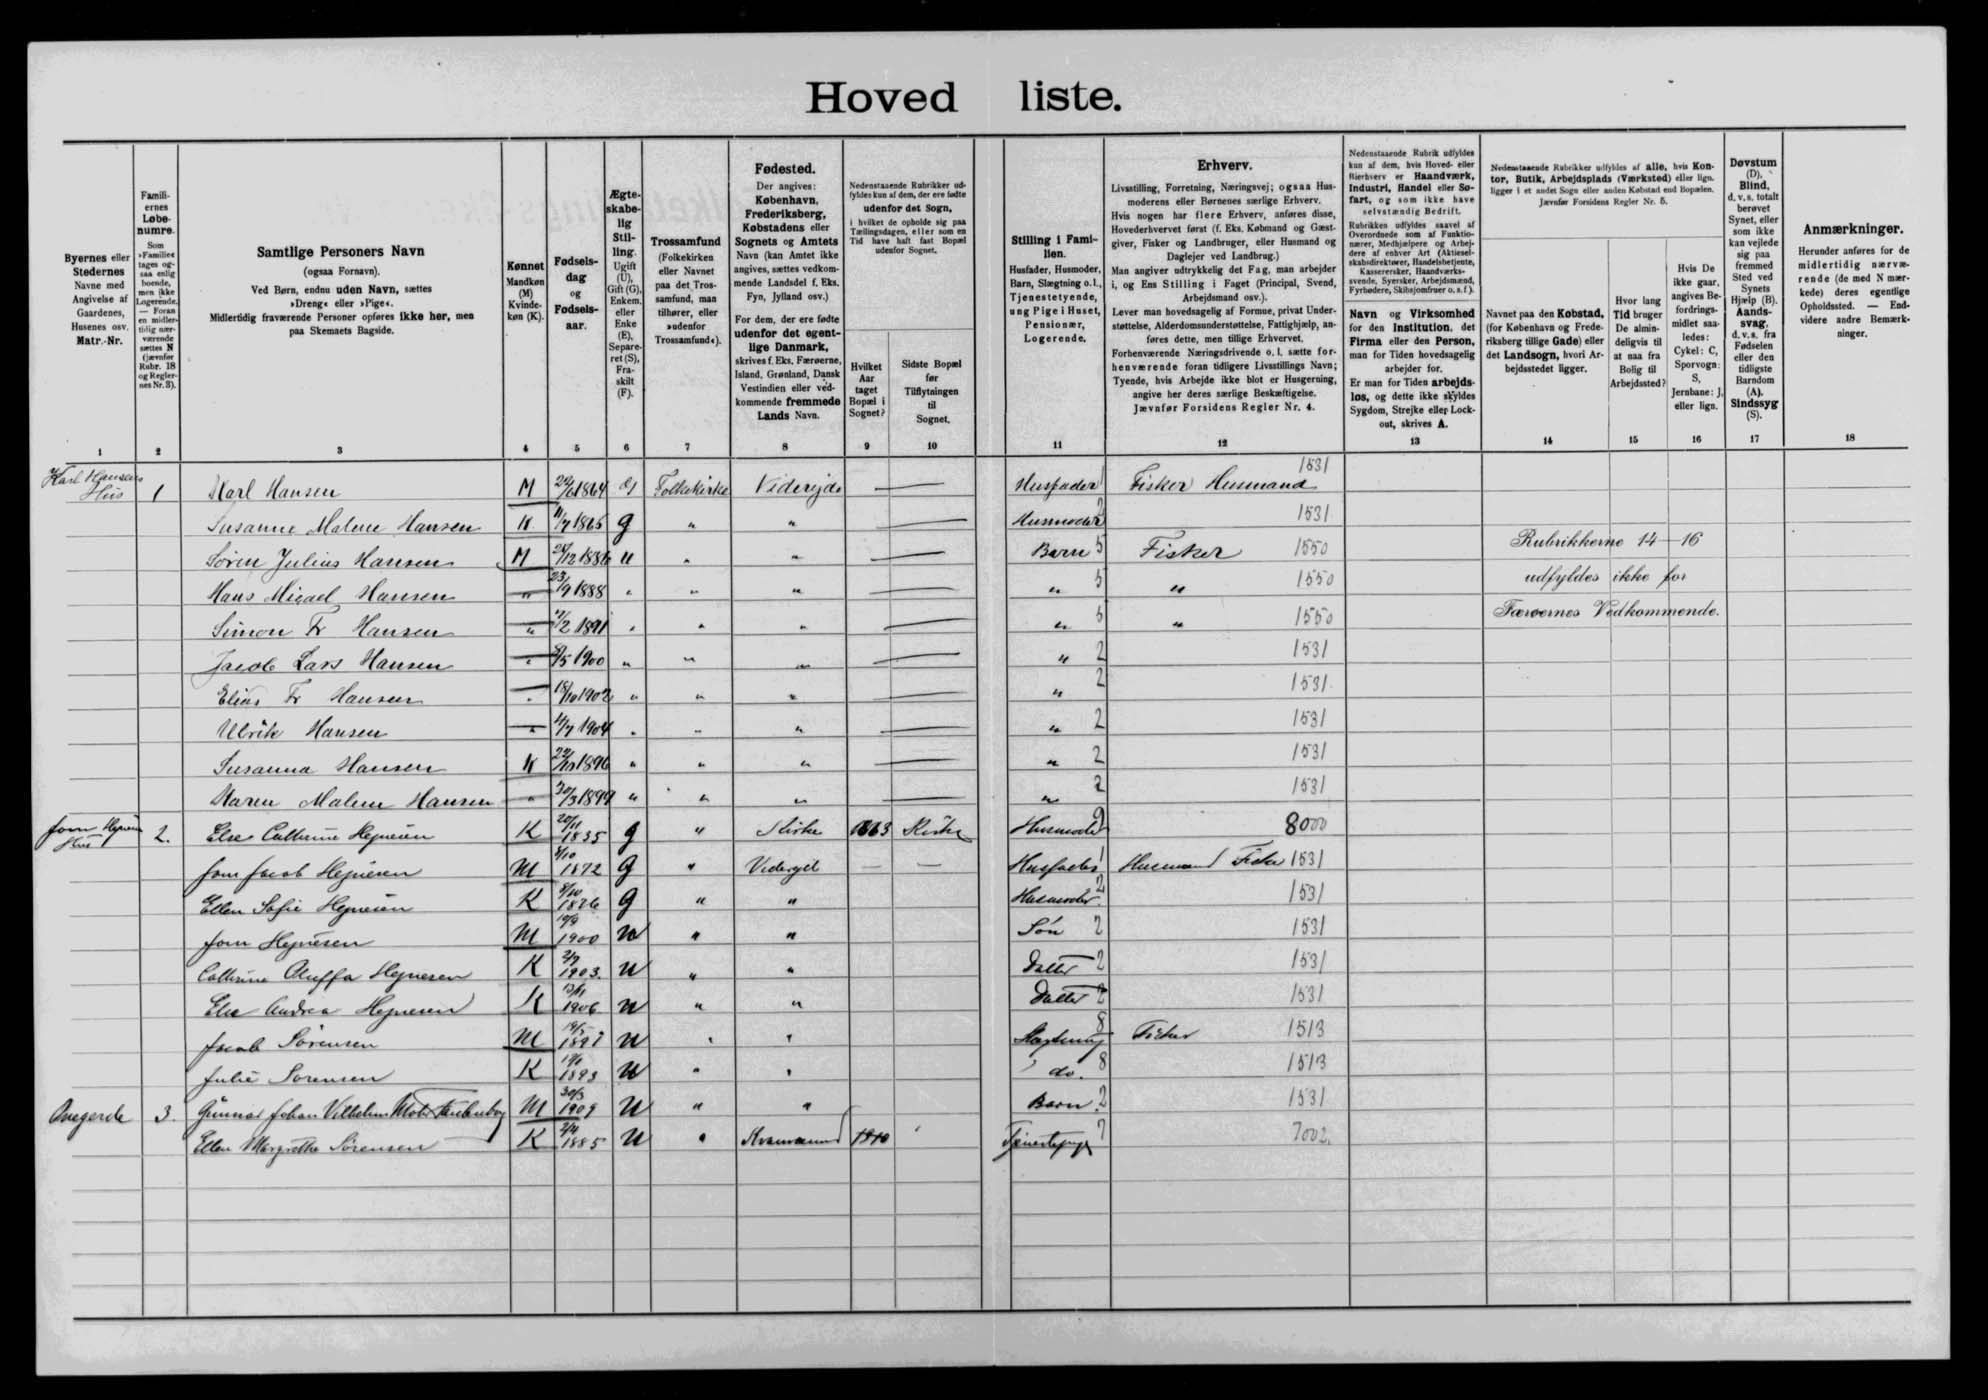 Hoved liste.
Byernes eller Stedernes Navne med Angivelse af Gaardenes, Husenes osv. Matr.-Nr.
Famili-ernes Løbe-numre. Som »Familie« tages og-saa enlig boende, men ikke Logerende. — Foran en midler-tidig nær-værende sættes N (jævnfør Rubr. 18 og Regler-nes Nr. 3).
Samtlige Personers Navn (ogsaa Fornavn). Ved Børn, endnu uden Navn, sættes »Dreng« eller »Pige«. Midlertidig fraværende Personer opføres ikke her, men paa Skemaets Bagside.
Kønnet Mandkøn (M) Kvinde-køn (K).
Fødsels-dag og Fødsels-aar.
Ægte-skabe-lig Stil-ling. Ugift (U), Gift (G), Enkem. eller Enke (E), Separe-ret (S), Fra-skilt (F).
Trossamfund (Folkekirken eller Navnet paa det Tros-samfund, man tilhører, eller »udenfor Trossamfund«).
Fødested. Der angives: København, Frederiksberg, Købstadens eller Sognets og Amtets Navn (kan Amtet ikke angives, sættes vedkom-mende Landsdel f. Eks. Fyn, Jylland osv.) For dem, der ere fødte udenfor det egent-lige Danmark, skrives f. Eks. Færøerne, Island, Grønland, Dansk Vestindien eller ved-kommende fremmede Lands Navn.
Nedenstaaende Rubrikker ud-fyldes kun af dem, der ere fødte udenfor det Sogn, i hvilket de opholde sig paa Tællingsdagen, eller som en Tid have haft fast Bopæl udenfor Sognet.
Hvilket Aar taget Bopæl i Sognet?
Sidste Bopæl før Tilflytningen til Sognet.
Stilling i Fami-lien. Husfader, Husmoder, Barn, Slægtning o. l., Tjenestetyende, ung Pige i Huset, Pensionær, Logerende.
Erhverv. Livsstilling, Forretning, Næringsvej; ogsaa Hus-moderens eller Børnenes særlige Erhverv. Hvis nogen har flere Erhverv, anføres disse, Hovederhvervet først (f. Eks. Købmand og Gæst-giver, Fisker og Landbruger, eller Husmand og Daglejer ved Landbrug.) Man angiver udtrykkelig det Fag, man arbejder i, og Ens Stilling i Faget (Principal, Svend, Arbejdsmand osv.). Lever man hovedsagelig af Formue, privat Under-støttelse, Alderdomsunderstøttelse, Fattighjælp, an-føres dette, men tillige Erhvervet. Forhenværende Næringsdrivende o. l. sætte for-henværende foran tidligere Livsstillings Navn; Tyende, hvis Arbejde ikke blot er Husgerning, angive her deres særlige Beskæftigelse. Jævnfør Forsidens Regler Nr. 4.
Nedenstaaende Rubrik udfyldes kun af dem, hvis Hoved- eller Bierhverv er Haandværk, Industri, Handel eller Sø-fart, og som ikke have selvstændig Bedrift. Rubrikken udfyldes saavel af Overordnede som af Funktio-nærer, Medhjælpere og Arbej-dere af enhver Art (Aktiesel-skabsdirektører, Handelsbetjente, Kasserersker, Haandværks-svende, Syersker, Arbejdsmænd, Fyrbødere, Skibsjomfruer o. s. f.). Navn og Virksomhed for den Institution, det Firma eller den Person, man for Tiden hovedsagelig arbejder for. Er man for Tiden arbejds-løs, og dette ikke skyldes Sygdom, Strejke eller Lock-out, skrives A.
Nedenstaaende Rubrikker udfyldes af alle, hvis Kon-tor, Butik, Arbejdsplads (Værksted) eller lign. ligger i et andet Sogn eller anden Købstad end Bopælen. Jævnfør Forsidens Regler Nr. 5.
Navnet paa den Købstad, (for København og Frede-riksberg tillige Gade) eller det Landsogn, hvori Ar-bejdsstedet ligger.
Hvor lang Tid bruger De almin-deligvis til at naa fra Bolig til Arbejdssted?
Hvis De ikke gaar, angives Be-fordrings-midlet saa-ledes: Cykel: C, Sporvogn: S, Jernbane: J, eller lign.
Døvstum (D). Blind, d. v. s. totalt berøvet Synet, eller som ikke kan vejlede sig paa fremmed Sted ved Synets Hjælp (B). Aands-svag, d. v. s. fra Fødselen eller den tidligste Barndom (A). Sindssyg (S).
Anmærkninger. Herunder anføres for de midlertidig nærvæ-rende (de med N mær-kede) deres egentlige Opholdssted. — End-videre andre Bemærk-ninger.
1 2 3 4 5 6 7 8 9 10 11 12 13 14 15 16 17 18
Karl Hansens Hus 1 Karl Hansen M 1864 G Folkekirke Viderejde — Husfader 1 Fisker Husmand 1531
Susanne Malene Hansen K 1865 g " " — Husmoder 2 1531
Søren Julius Hansen M 1886 U " " — Barn 5 Fisker 1550 Rubrikkerne 14-16
Hans Micael Hansen " 23/9 1888 " " " — " 5 " 1550 udfyldes ikke for
Simon Fr Hansen " 1891 " " " — " 5 " 1550 Færøernes Vedkommende.
Jacob Lars Hansen " 1900 " " " — " 2 1531
Elias Fr Hansen " 18/10 1902 " " " — " 2 1531
Ulrik Hansen " 4/7 1904 " " " — " 2 1531
Susanna Hansen K 1896 " " " — " 2 1531
Karen Malene Hansen " 30/3 1899 " " " — " 2 1531
Hus 2. Else Cathrine Hejnesen K 1835 g " Kirke 1863 Kirke Husmoder 9 8000
Jacob Hejnesen M 1872 g " Viderejd — — Husfader 1 Husmand Fisker 1531
Ellen Sofie Hejnesen K 1876 g " " Husmoder 2 1531
Hejnesen M 1900 U " " Søn 2 1531
Cathrine Hejnesen K 1903. U " " Datter 2 1531
Else Andrea Hejnesen K 1906 U " " Datter 2 1531
Jacob Sørensen M U " " 8 Fisker 1513
Julie Sørensen K 1893 U " " do. 8 1513
3. Gunnar Johan Vilhelm M 30/3 1909 U " " Barn 2 1531
Ellen Margrethe Sørensen K 1885 U " 1910 Tjenestepige 7 7002.